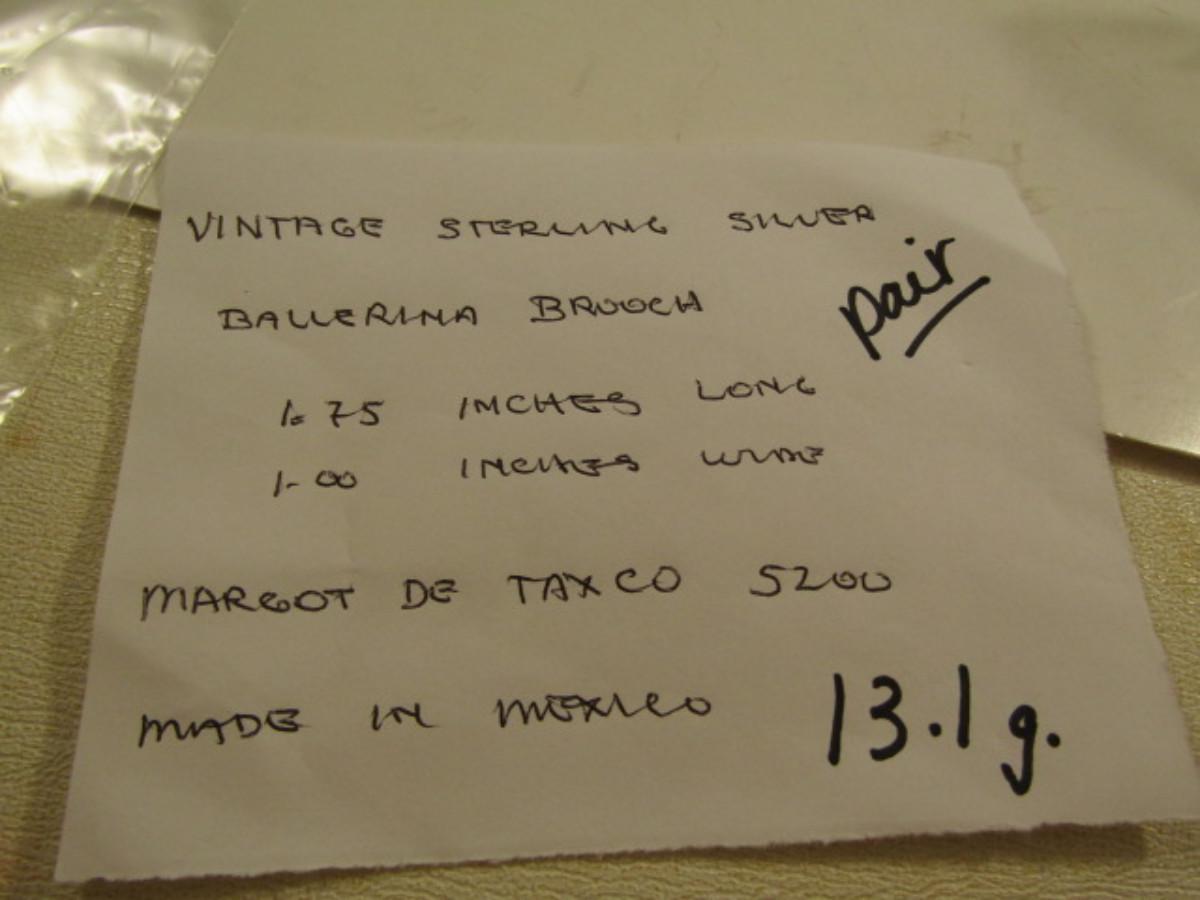 VINTAGE STERLING SILVER
pair
BALLERINA BROOCH
1.75 INCHES LONG
1.00 INCHES WIDE
MARGOT DE TAXCO 5200
MADE IN MEXICO
13.1 g.